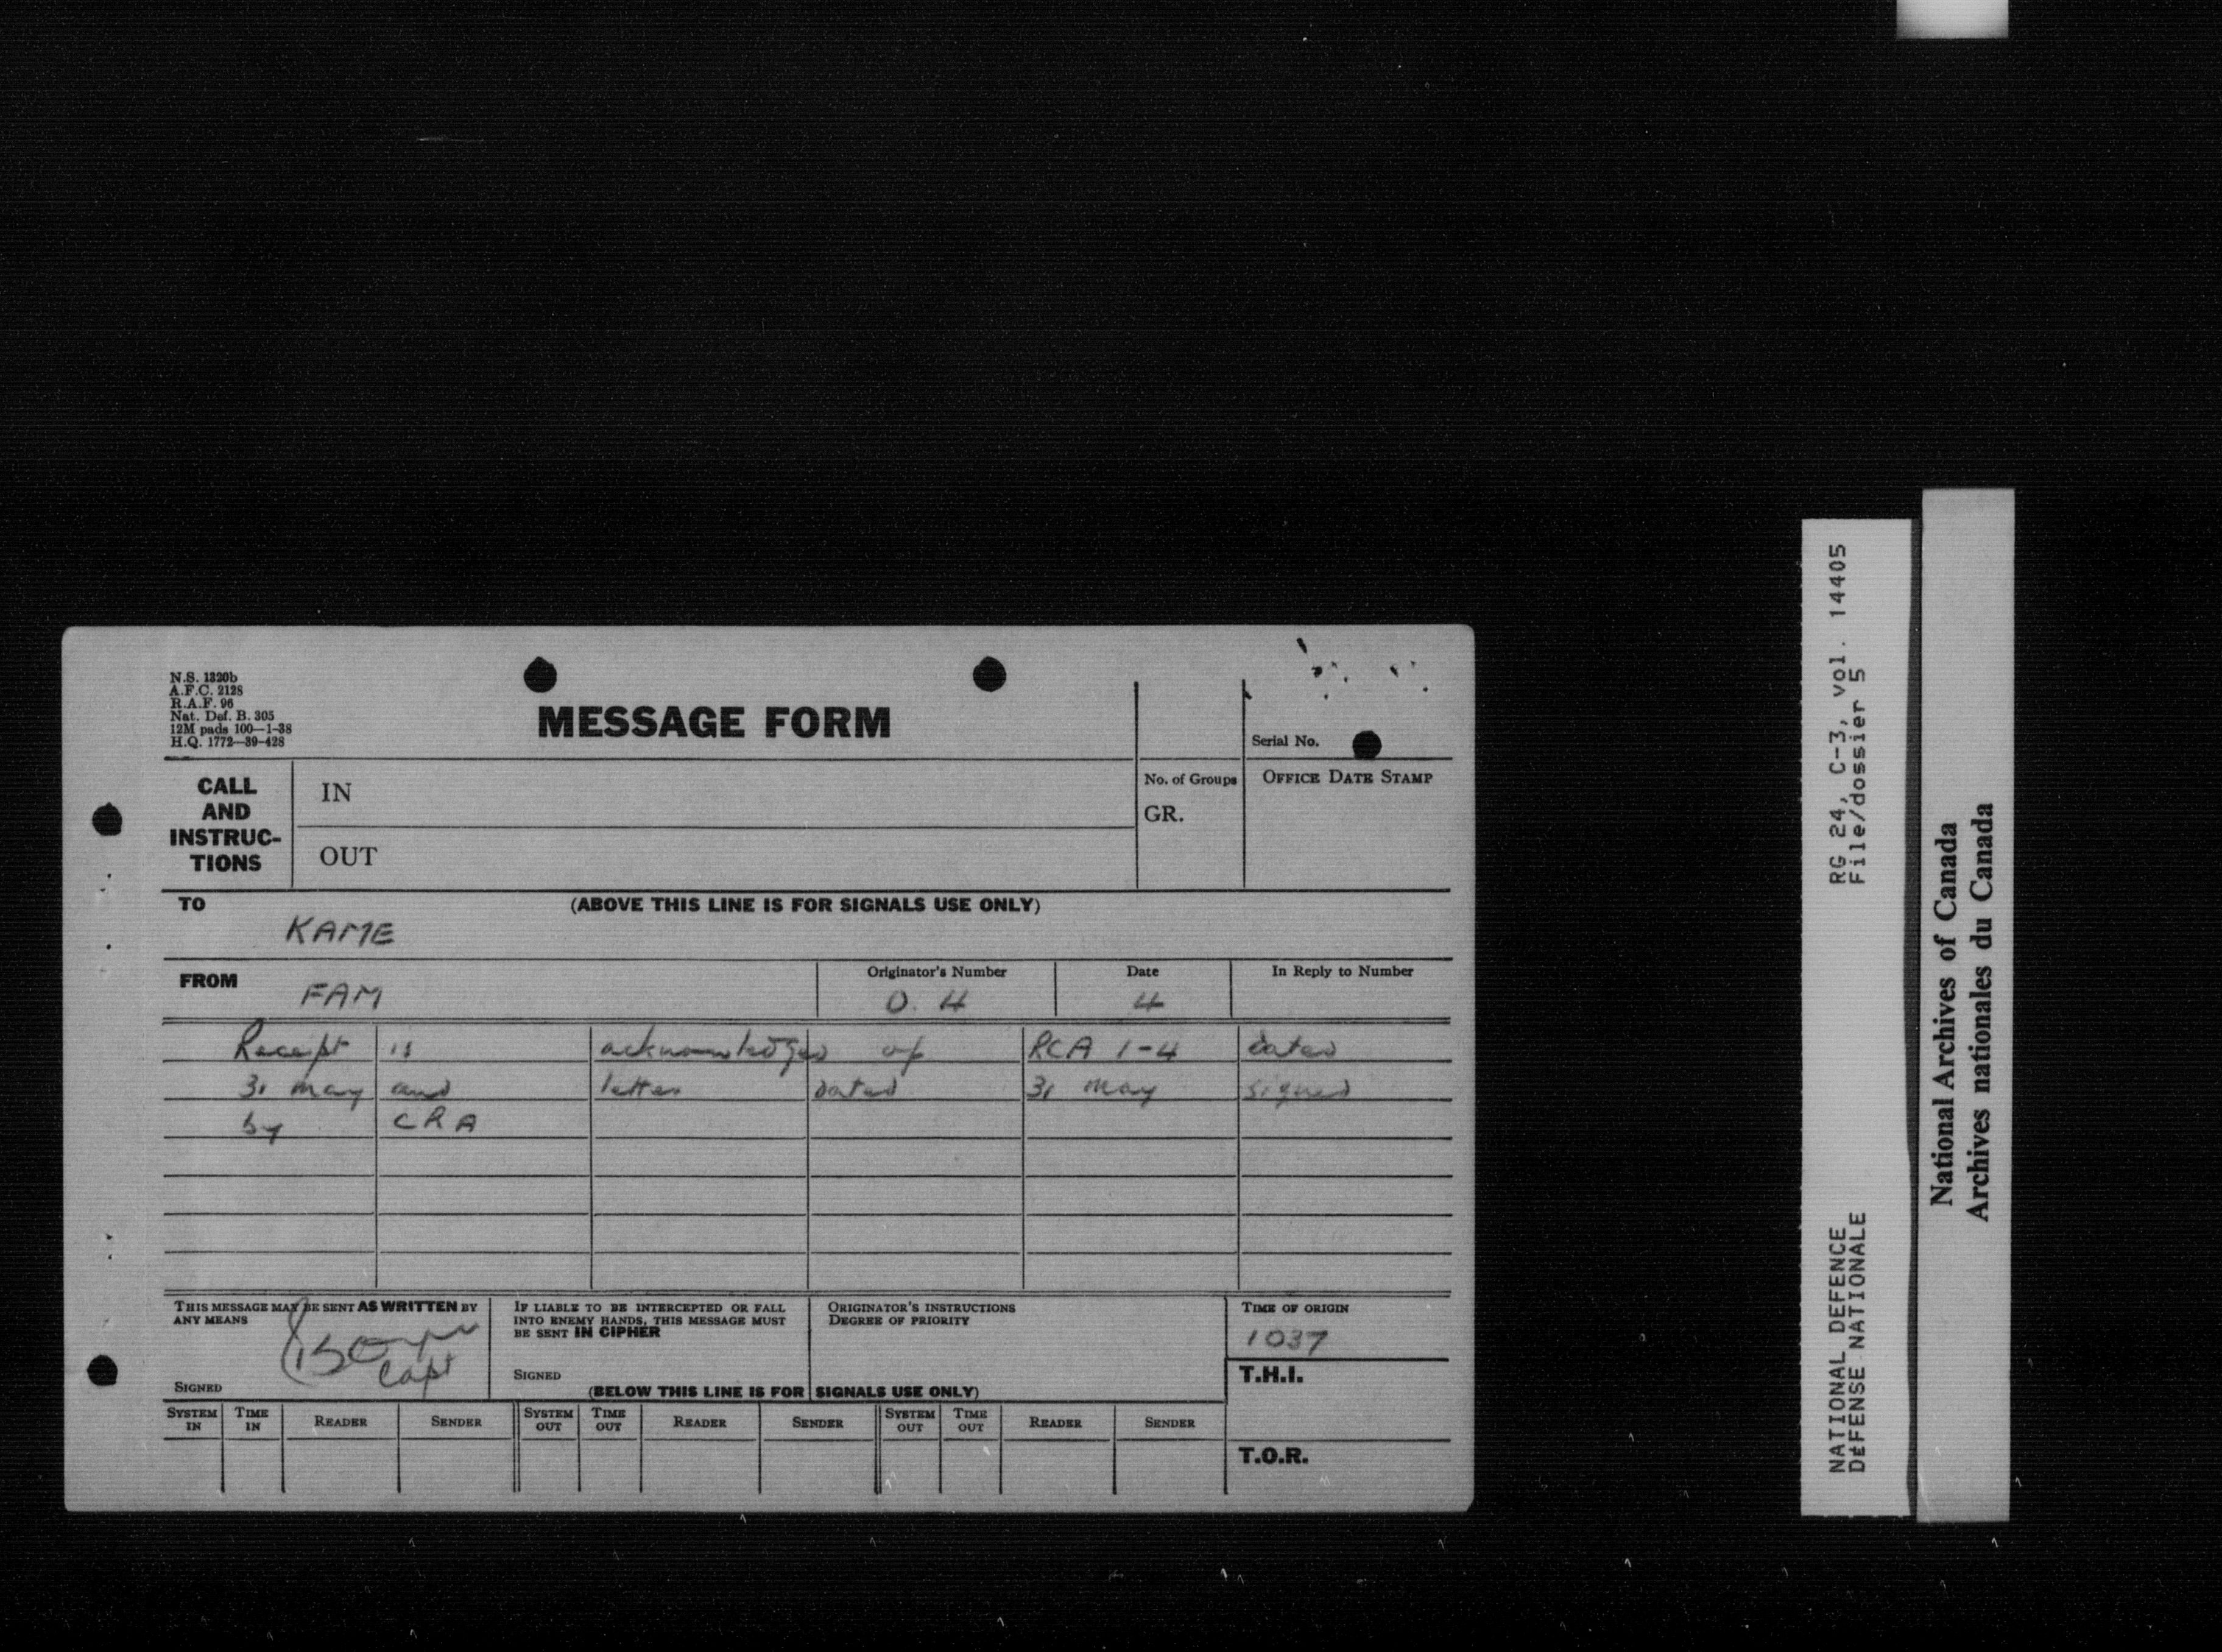 N.S. 1320b
A.F.C. 2128
R.A.F. 96
Nat. Def. B. 305
12M pads 100—1-38
H.Q. 1772—39-428
MESSAGE FORM
Serial No.
CALL AND INSTRUC-TIONS
IN
OUT
No. of Groups
GR.
OFFICE DATE STAMP
TO
(ABOVE THIS LINE IS FOR SIGNALS USE ONLY)
KAME
FROM
FAM
Originator's Number
O. 4
Date
4
In Reply to Number
Receipt is acknowledged of RCA 1-4 dated
31 May and letter dated 31 May signed
by CRA
THIS MESSAGE MAY BE SENT AS WRITTEN BY
ANY MEANS
Capt
SIGNED
IF LIABLE TO BE INTERCEPTED OR FALL
INTO ENEMY HANDS, THIS MESSAGE MUST
BE SENT IN CIPHER
SIGNED
ORIGINATOR'S INSTRUCTIONS
DEGREE OF PRIORITY
TIME OF ORIGIN
1037
T.H.I.
(BELOW THIS LINE IS FOR SIGNALS USE ONLY)
SYSTEM IN TIME IN READER SENDER SYSTEM OUT TIME OUT READER SENDER SYSTEM OUT TIME OUT READER SENDER
T.O.R.
RG 24, C-3, vol. 14405
File/dossier 5
NATIONAL DEFENCE
DÉFENSE NATIONALE
National Archives of Canada
Archives nationales du Canada